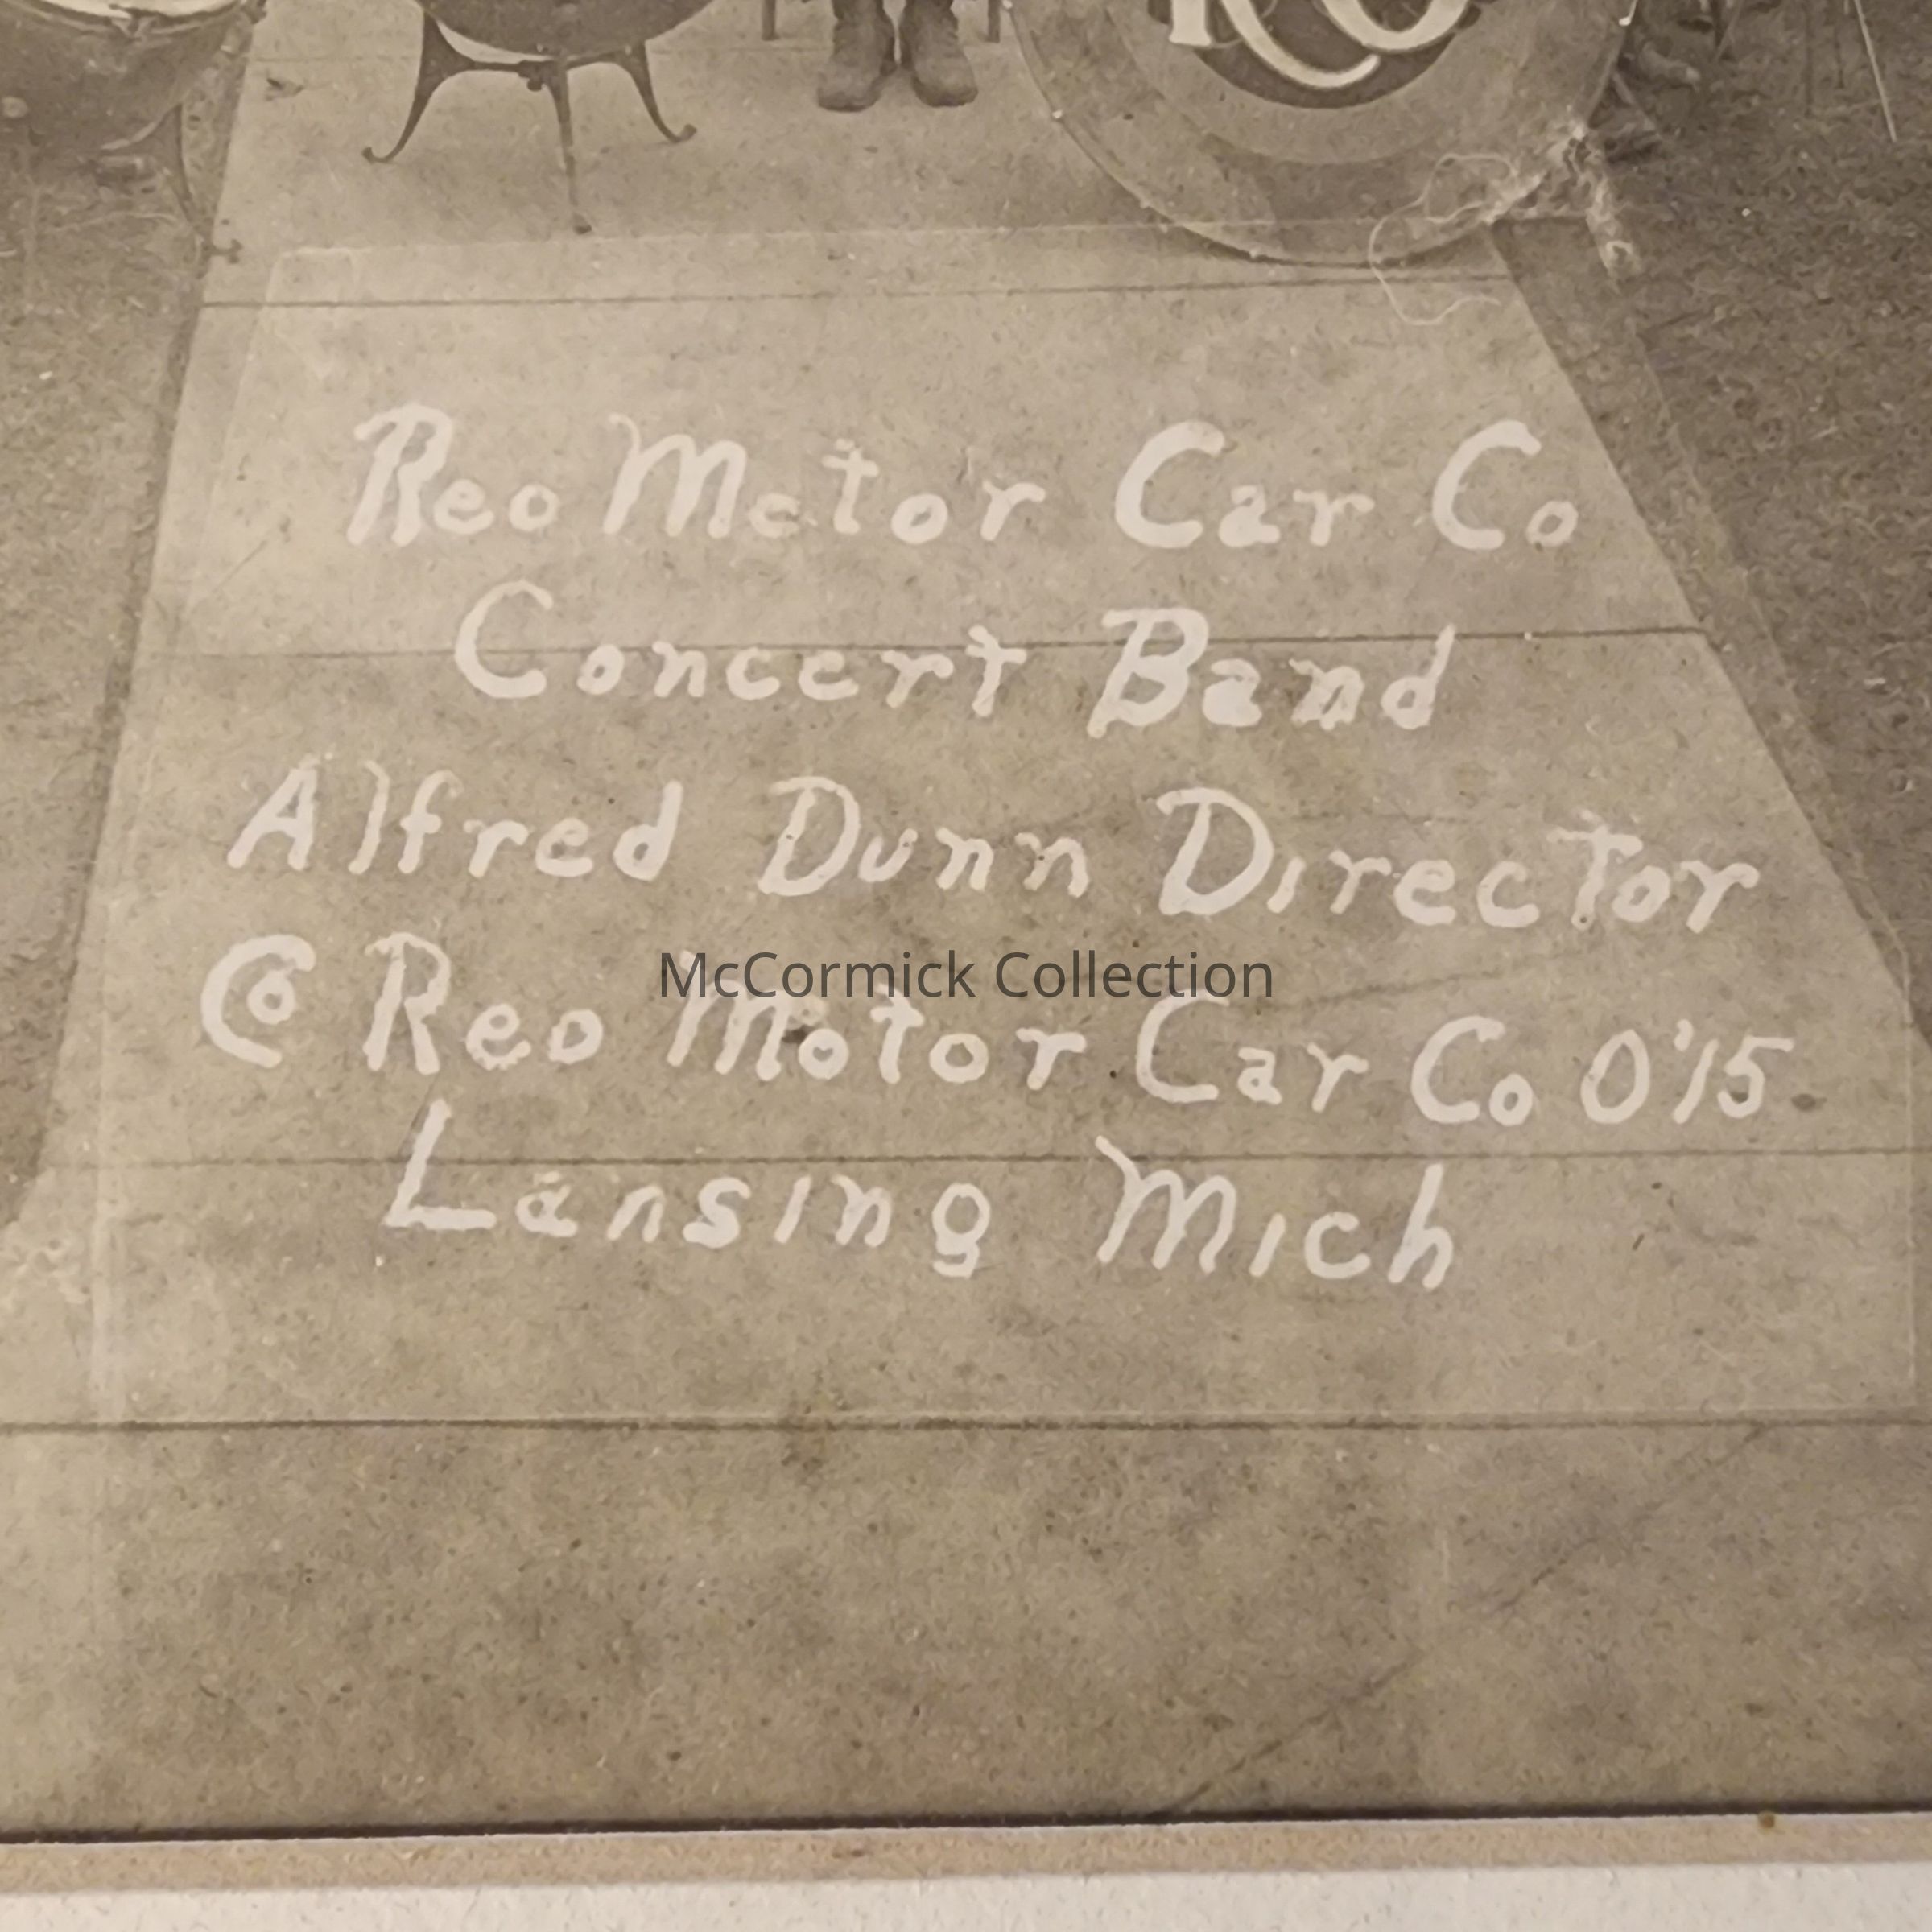 Reo Motor Car Co
Concert Band
Alfred Dunn Director
© Reo Motor Car Co 0'15
Lansing Mich
McCormick Collection